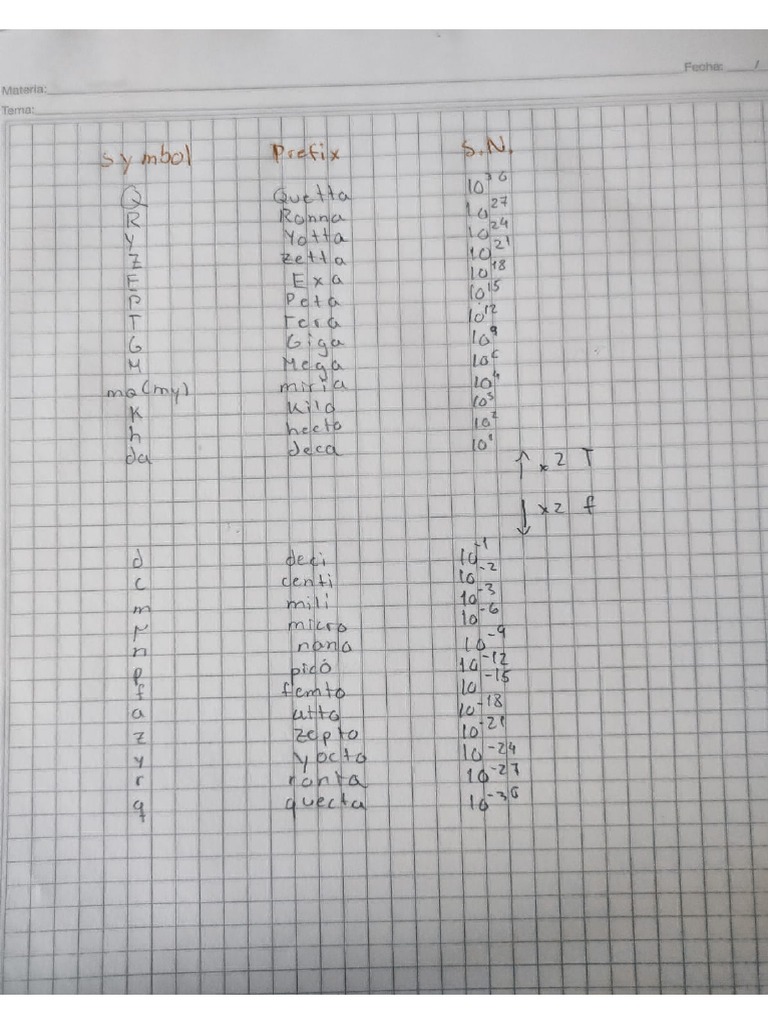 Fecha: /
Materia:
Tema:
Symbol Prefix S.N.
Q Quetta 10³⁰
R Ronna 10²⁷
Y Yotta 10²⁴
Z Zetta 10²¹
E Exa 10¹⁸
P Peta 10¹⁵
T Tera 10¹²
G Giga 10⁹
M Mega 10⁶
ma(my) miria 10⁴
K Kilo 10³
h hecto 10²
da deca 10¹
↑ x2 T
↓ x2 f
d deci 10⁻¹
c centi 10⁻²
m mili 10⁻³
μ micro 10⁻⁶
n nano 10⁻⁹
p pico 10⁻¹²
f femto 10⁻¹⁵
a atto 10⁻¹⁸
z zepto 10⁻²¹
y yocto 10⁻²⁴
r ronta 10⁻²⁷
q quecta 10⁻³⁰